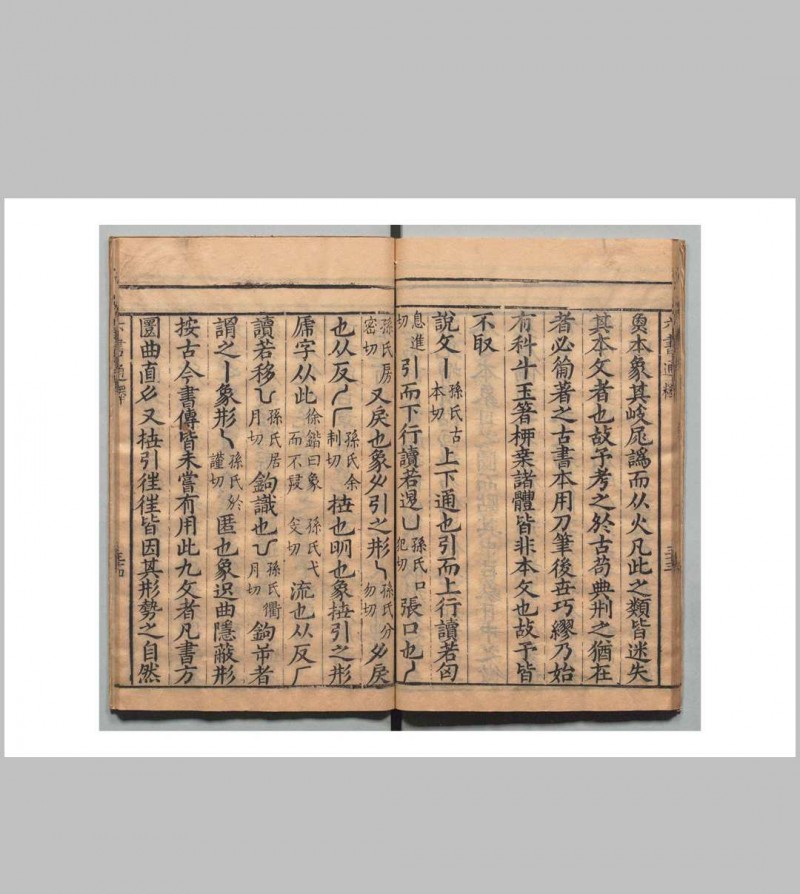 魚本象其岐尾譌而从火凡此之類皆迷失
其本文者也故予考之於古苟典刑之猶在
者必僃著之古書本用刀筆後世巧繆乃始
有科斗玉箸柳葉諸體皆非本文也故予皆
不取
說文丨孫氏古本切上下通也引而上行讀若囟
息進切引而下行讀若𨓤凵孫氏口犯切張口也丿
孫氏房密切又戾也象𠂆引之形乀孫氏分勿切𠂆戾
也从反丿𠂆孫氏余制切抴也明也象抴引之形
虒字从此徐鍇曰象而不㩻乁孫氏弋支切流也从反𠂆
讀若移亅孫氏居月切鉤識也𠄌孫氏衢月切鉤帀者
謂之丨象形乚孫氏於謹切匿也象迟曲隱蔽形
按古今書傳皆未嘗有用此九文者凡書方
圜曲直𠂆又抴引徃徃皆因其形勢之自然
六書通釋
三十三
六書通釋
三十四